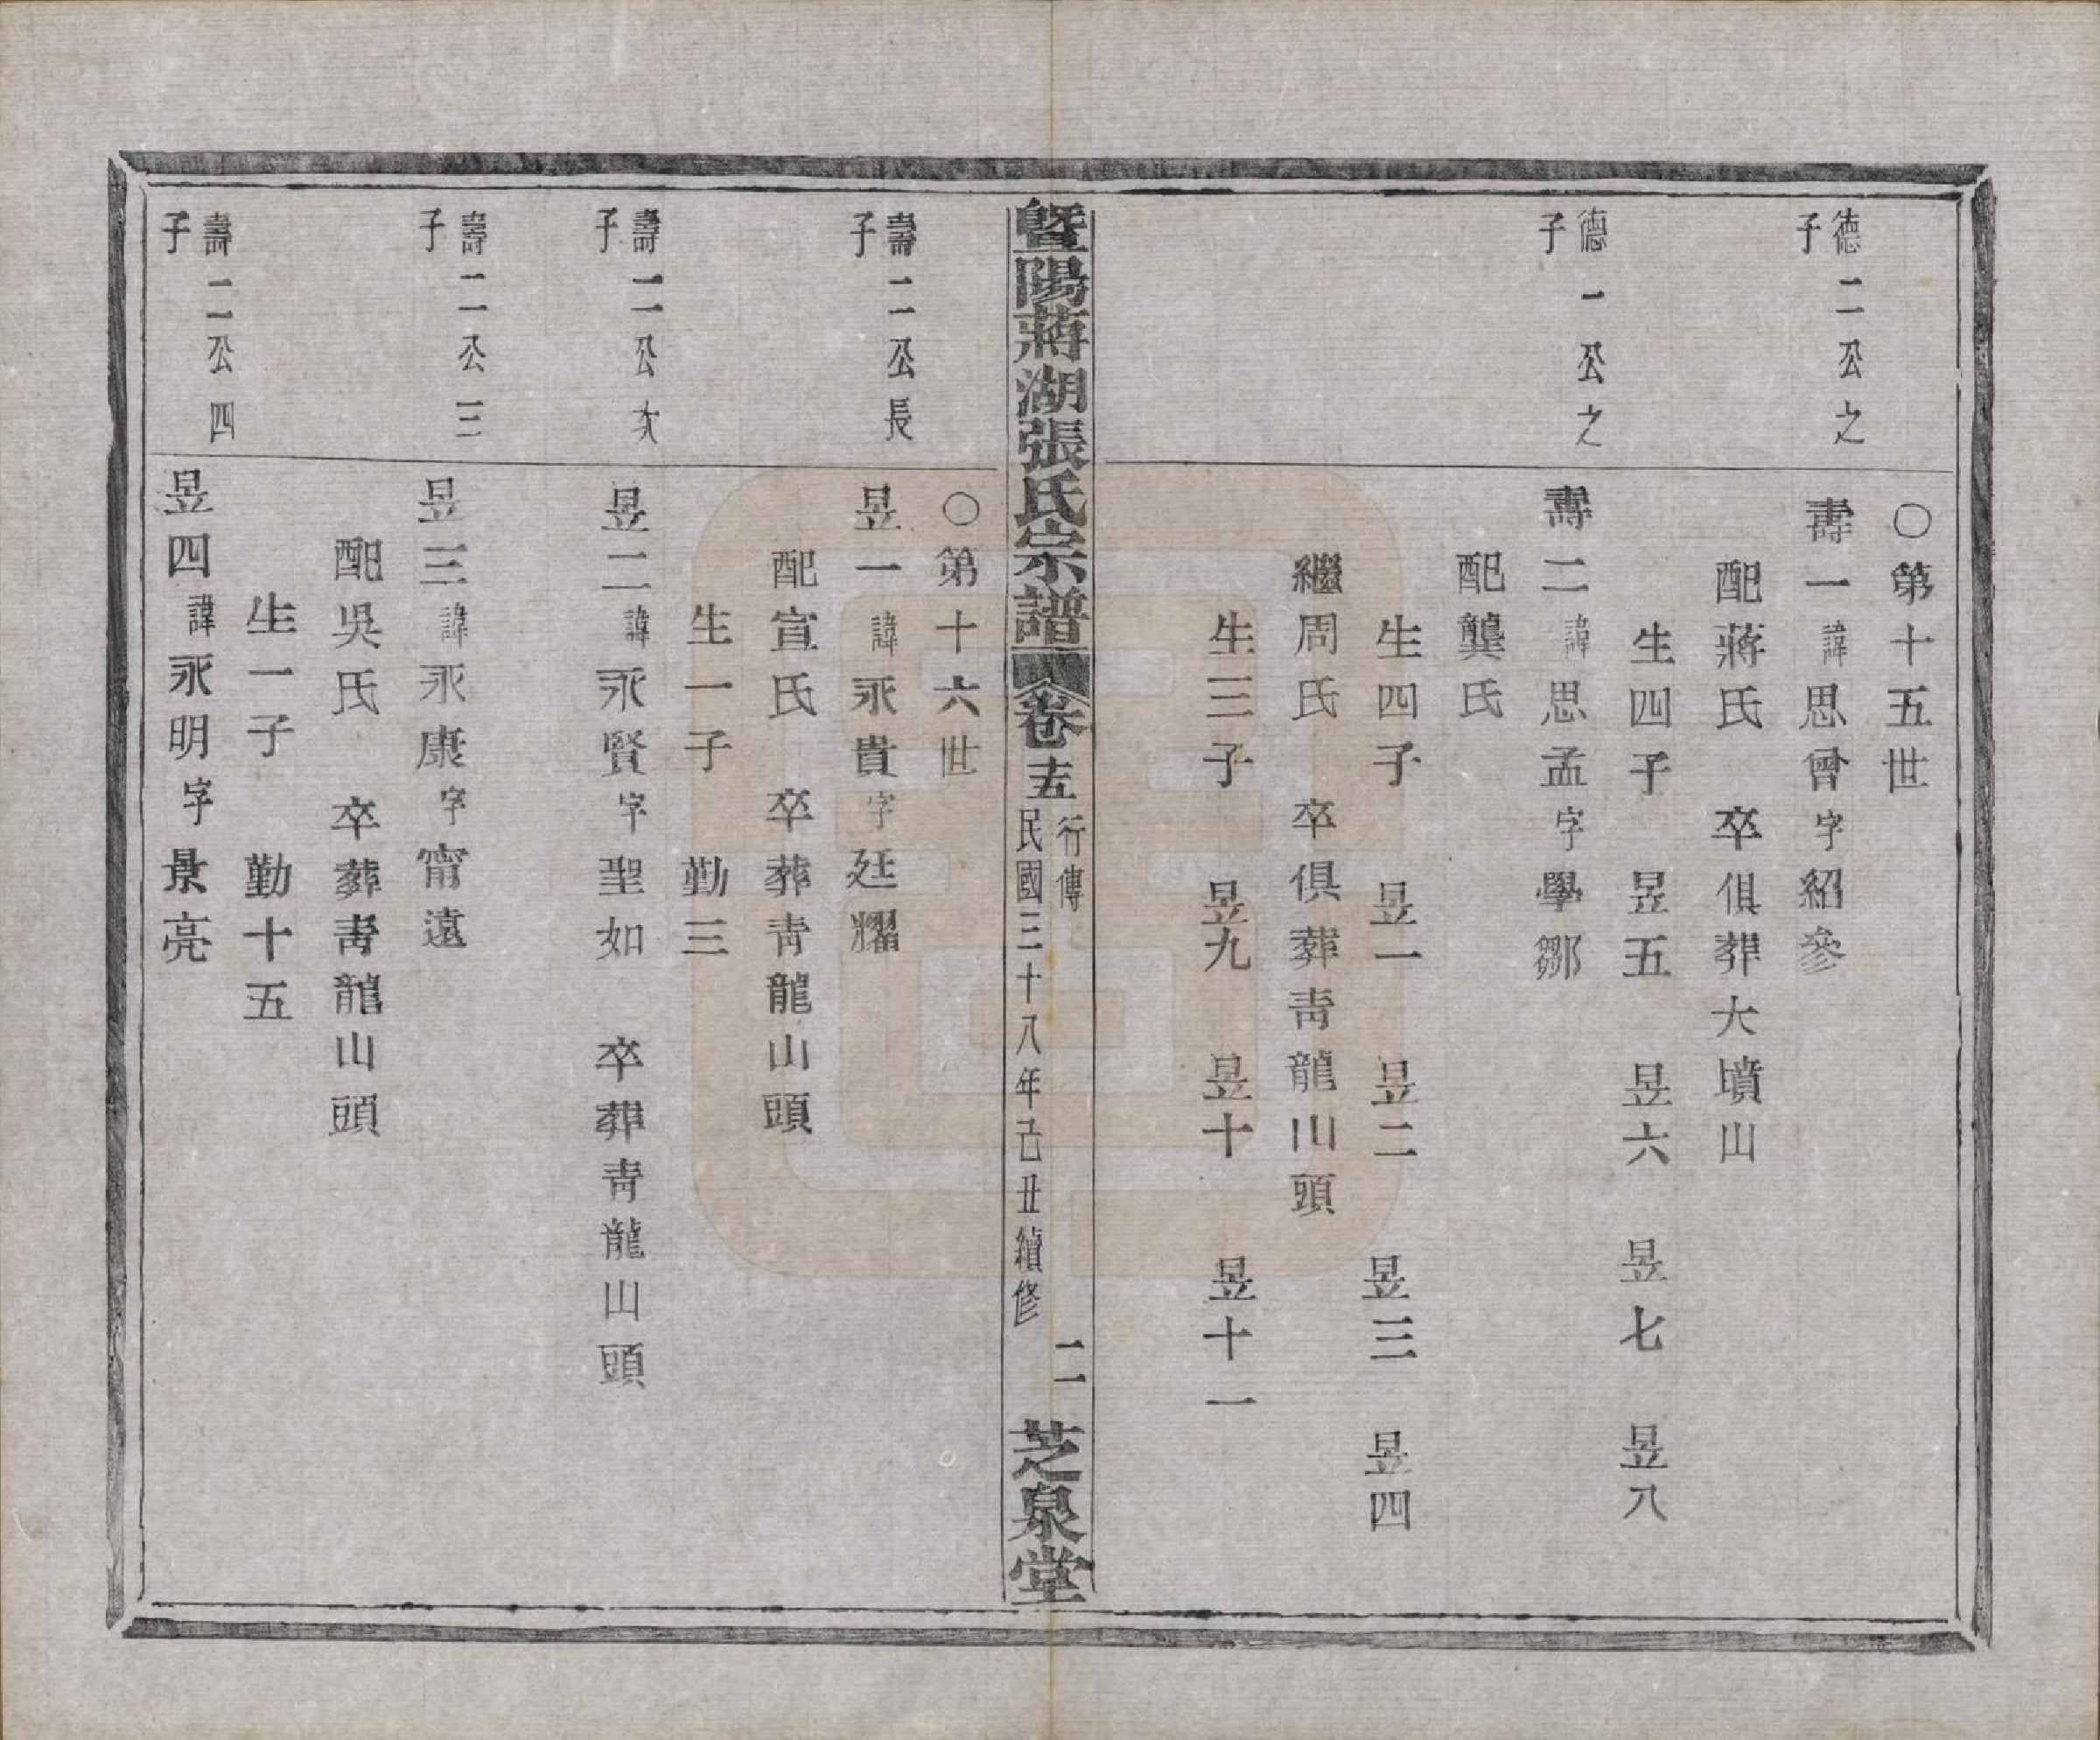 ○第十五世
德二公之子
壽一諱思曾字紹參
配蔣氏　卒俱葬大墳山
生四子　昱五　昱六　昱七　昱八
德一公之子
壽二諱思孟字學鄒
配龔氏
生四子　昱一　昱二　昱三　昱四
繼周氏　卒俱葬靑龍山頭
生三子　昱九　昱十　昱十一
暨陽蔣湖張氏宗譜　卷十五　行傳　民國三十八年己丑續修　二　芝泉堂
○第十六世
壽二公長子
昱一諱永貴字廷耀
配宣氏　卒葬靑龍山頭
生一子　勤三
壽二公次子
昱二諱永賢字聖如　卒葬靑龍山頭
壽二公三子
昱三諱永康字甯遠
配吳氏　卒葬靑龍山頭
生一子　勤十五
壽二公四子
昱四諱永明字景亮